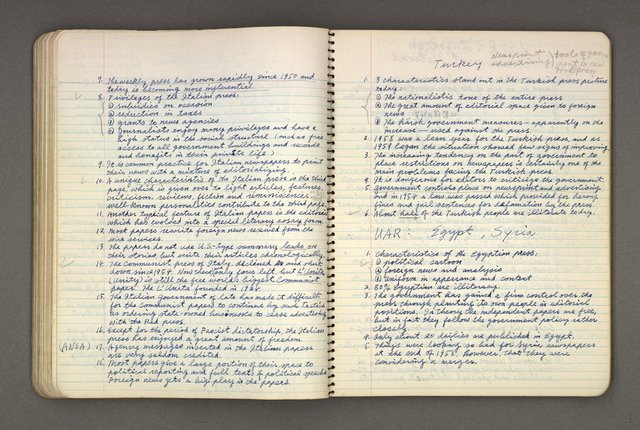 7. The weekly press has grown rapidly since 1950 and
today is becoming more influential.
8. Privileges of the Italian press:
① subsidies on occasion
② reduction in taxes
③ grants to news agencies
④ Journalists enjoy many privileges and have a
high status in the social structure. (such as free
access to all government buildings and records
and benefits in their private life)
9. It is common practice for Italian newspapers to print
their news with a mixture of editorializing.
10. A unique characteristic of the Italian press is the third
page, which is given over to light articles, features,
criticism, reviews, fiction and reminiscences.
Well-known personalities contribute to the third page.
11. Another typical feature of Italian papers is the editorial
which has evolved into a special literary essay form.
12. Most papers rewrite foreign news received from the
wire services.
13. The papers do not use U.S.-type summary leads on
their stories but write their articles chronologically.
14. The Communist press of Italy declined and shut
down since 1954. Now there only four left, but L'Unita
(Unity) is still the free world's biggest Communist
paper. The L'Unita founded in 1924.
15. The Italian Government of late has made it difficult
for the Communist papers to continue by such tactics
as ordering state-owned businesses to cease advertising
with the Red press.
16. Except for the period of Fascist dictatorship, the Italian
press has enjoyed a great amount of freedom.
(ANSA) 17. Agency messages inserted in the Italian papers
are very seldom credited.
18. Most papers give a large portion of their space to
political reporting and full texts of political speeches.
Foreign news gets a big play in the papers.
Turkey
Newsprint
advertising
tools of govern
ment to con
press
1. 3 characteristics stand out in the Turkish press picture
today:
① The nationalistic tone of the entire press
② The great amount of editorial space given to foreign
news
③ The harsh government measures—apparently on the
increase—used against the press.
2. 1958 was a lean year for the Turkish press, and as
1959 began the situation showed few signs of improving.
3. The increasing tendency on the part of government to
place restrictions on newspapers is certainly one of the
main problems facing the Turkish press.
4. It is dangerous for editors to criticize the government.
5. Government controls place on newsprint and advertising
and in 1954 a law was passed which provided for heavy
fines and jail sentences for defamation by the press.
6. About half of the Turkish people are illiterate today.
UAR: Egypt, Syria
1. Characteristics of the Egyptian press:
① political cartoon
② foreign news and analysis
③ Uniform in appearance and content
2. 80% Egyptian are illiteracy.
3. The government has gained a firm control over the
press through planting its own people in editorial
positions. In theory the independent papers are free,
but in fact they follow the government policy rather
closely.
4. Only about 20 dailies are published in Egypt.
5. Things were looking so bad for Syria newspapers
at the end of 1958, however, that they were
considering a merger.